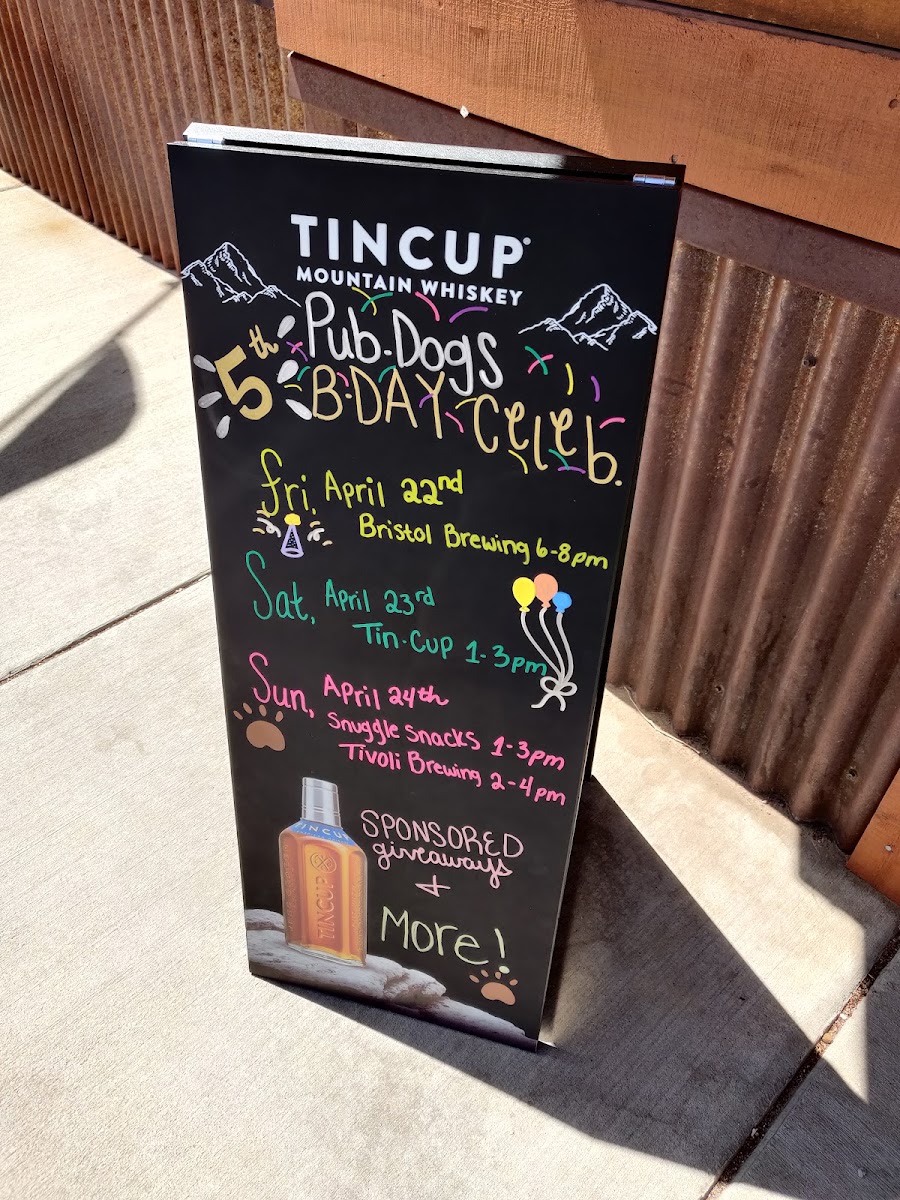 TINCUP®
MOUNTAIN WHISKEY
5th Pub-Dogs
B-DAY Celeb.
Fri, April 22nd
Bristol Brewing 6-8pm
Sat, April 23rd
Tin-Cup 1-3pm
Sun, April 24th
Snuggle Snacks 1-3pm
Tivoli Brewing 2-4pm
SPONSORED
giveaways
+
More!
TINCUP
TINCUP